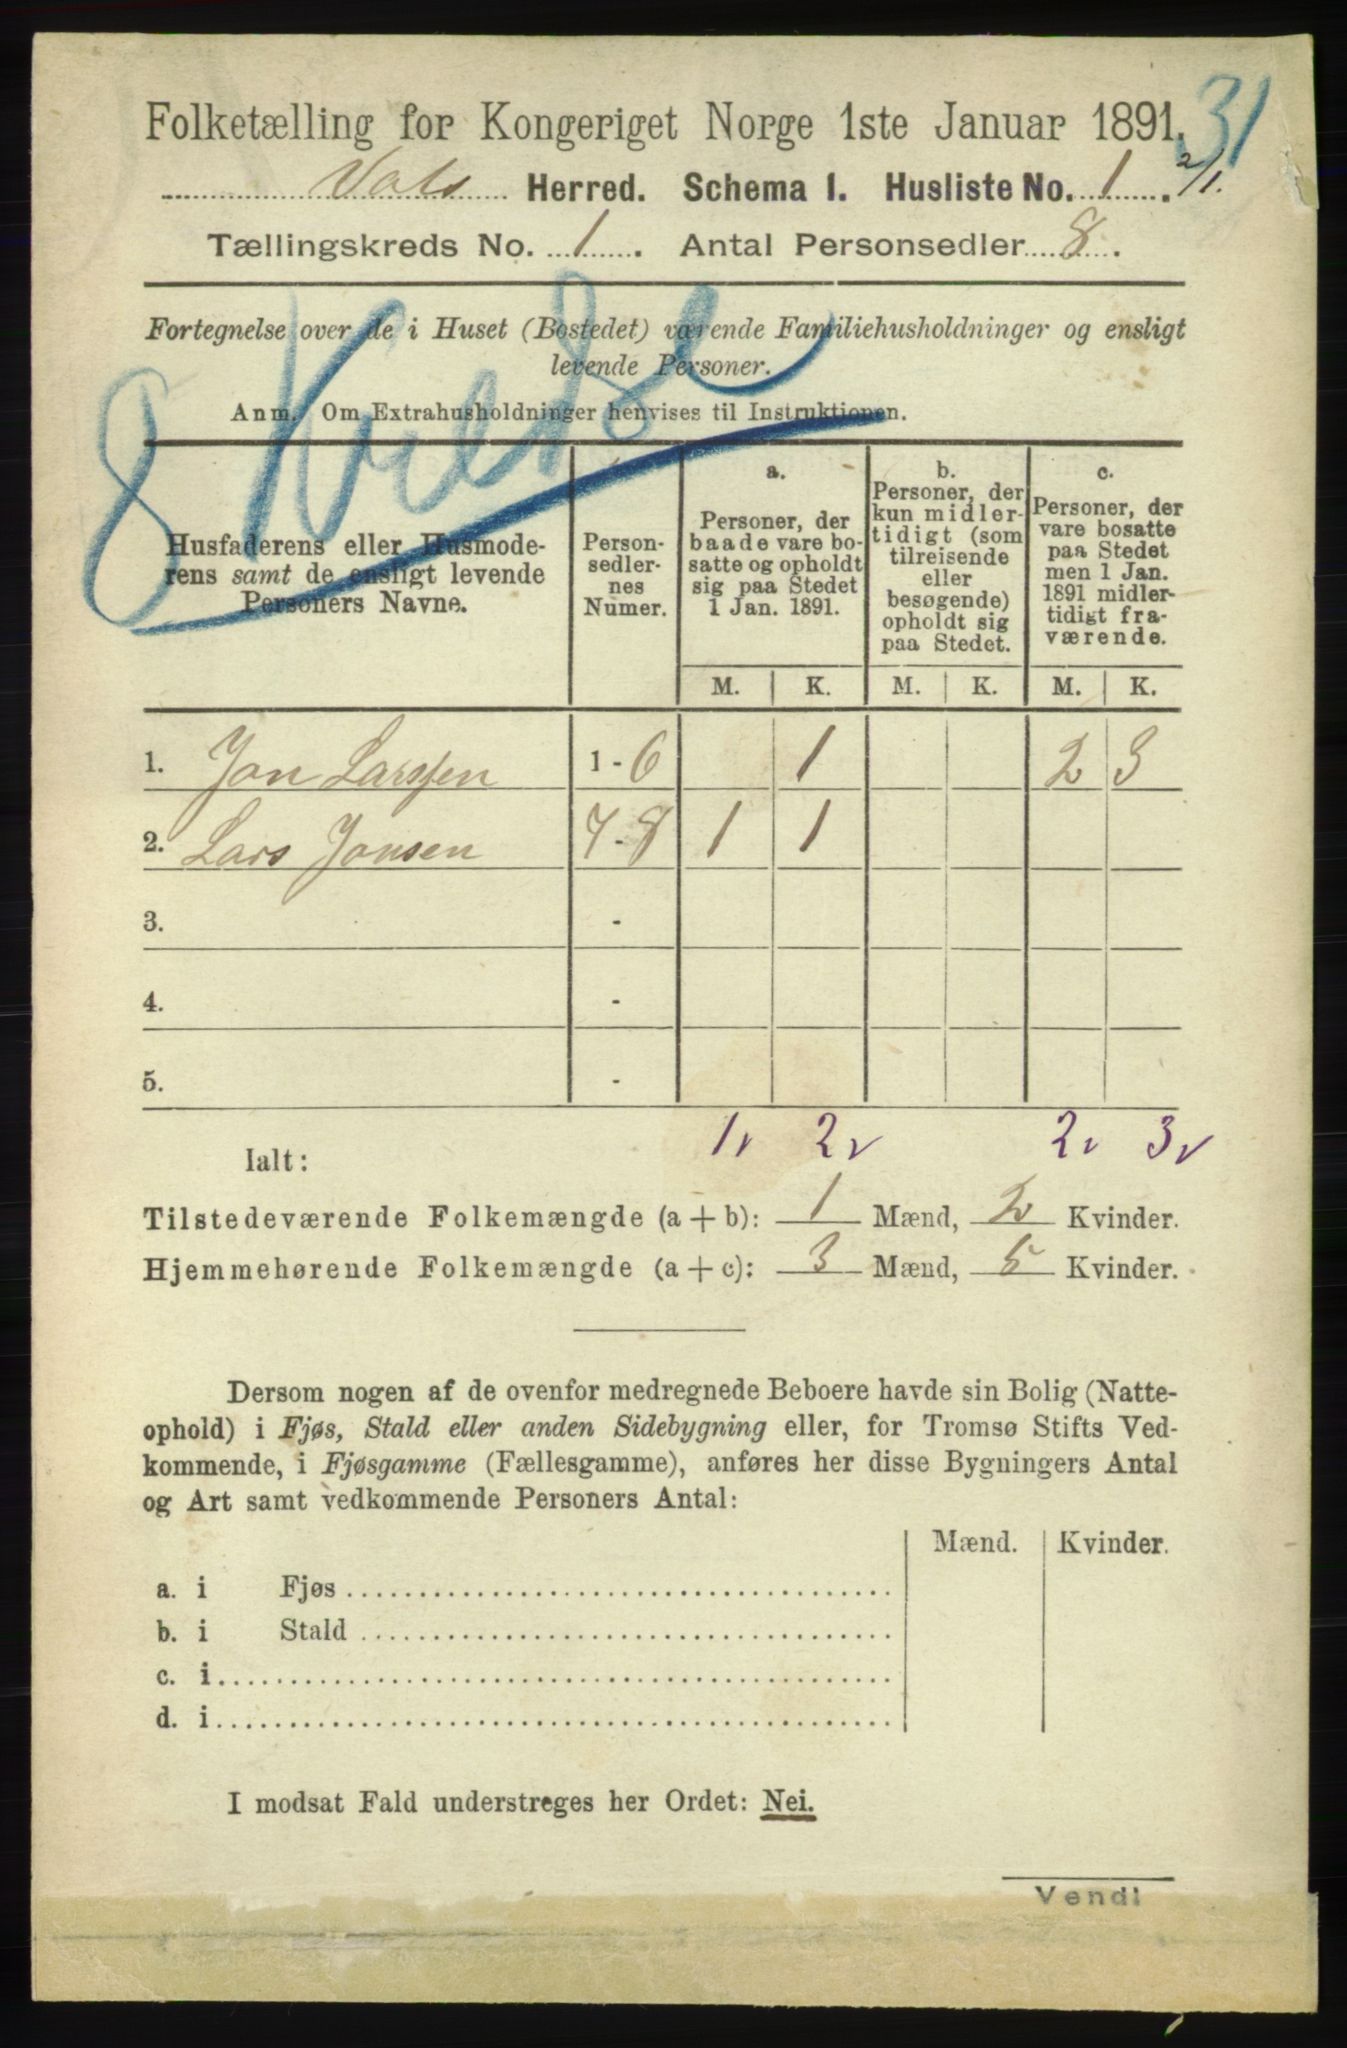 Folketælling for Kongeriget Norge 1ste Januar 1891.
31
Vats Herred. Schema 1. Husliste No. 1. 2/1.
Tællingskreds No. 1. Antal Personsedler 8.
Fortegnelse over de i Huset (Bostedet) værende Familiehusholdninger og ensligt
levende Personer.
Anm. Om Extrahusholdninger henvises til Instruktionen.
8 Kredse
Husfaderens eller Husmode-
rens samt de ensligt levende
Personers Navne.
Person-
sedler-
nes
Numer.
a.
Personer, der
baade vare bo-
satte og opholdt
sig paa Stedet
1 Jan. 1891.
b.
Personer, der
kun midler-
tidigt (som
tilreisende
eller
besøgende)
opholdt sig
paa Stedet.
c.
Personer, der
vare bosatte
paa Stedet
men 1 Jan.
1891 midler-
tidigt fra-
værende.
M. K. M. K. M. K.
1. Jon Larssen 1 - 6 1 2 3
2. Lars Jonsen 7 - 8 1 1
3. -
4. -
5. -
Ialt: 1 2 2 3
Tilstedeværende Folkemængde (a + b): 1 Mænd, 2 Kvinder.
Hjemmehørende Folkemængde (a + c): 3 Mænd, 5 Kvinder.
Dersom nogen af de ovenfor medregnede Beboere havde sin Bolig (Natte-
ophold) i Fjøs, Stald eller anden Sidebygning eller, for Tromsø Stifts Ved-
kommende, i Fjøsgamme (Fællesgamme), anføres her disse Bygningers Antal
og Art samt vedkommende Personers Antal:
Mænd. Kvinder.
a. i Fjøs
b. i Stald
c. i
d. i
I modsat Fald understreges her Ordet: Nei.
Vend!